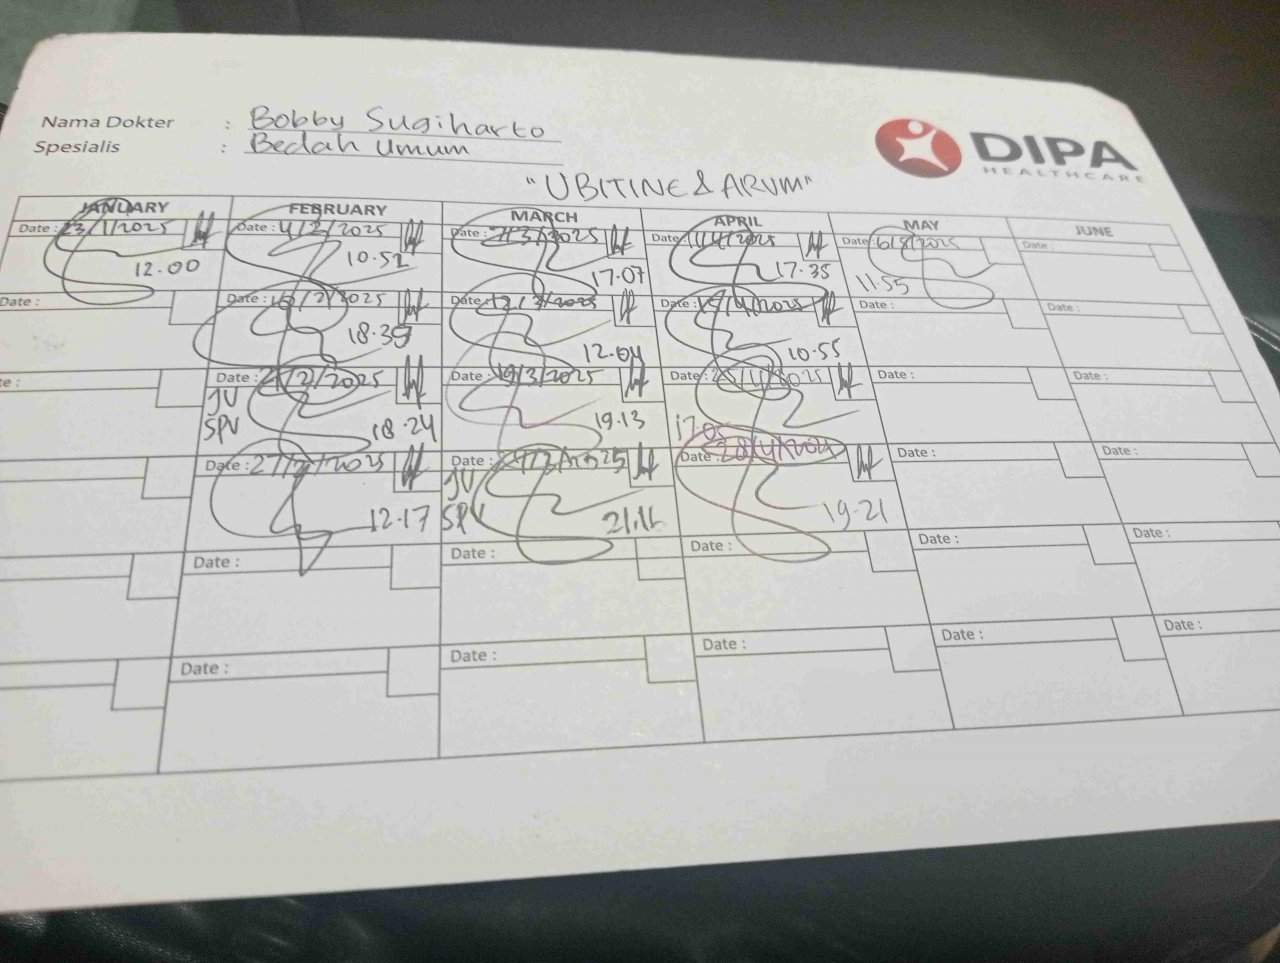 Nama Dokter : Bobby Sugiharto
Spesialis : Bedah Umum
DIPA
HEALTHCARE
"UBITINE & ARUM"
JANUARY FEBRUARY MARCH APRIL MAY JUNE
Date : 23/1/2025 Date : 4/2/2025 Date : /3/2025 Date : /4/2025 Date : 6/5/2025 Date :
12.00 10.52 17.07 17.35 11.55
Date : Date : /2/2025 Date : /3/2025 Date : /4/2025 Date : Date :
18.39 12.04 10.55
Date : Date : /2/2025 Date : 19/3/2025 Date : /4/2025 Date : Date :
JV
SPV 18.24 19.13 17.05
Date : 27/2/2025 Date : /2025 Date : 28/4/ Date : Date :
JV
12.17 SPV 21.16 19.21
Date : Date : Date : Date : Date :
Date : Date : Date : Date : Date :